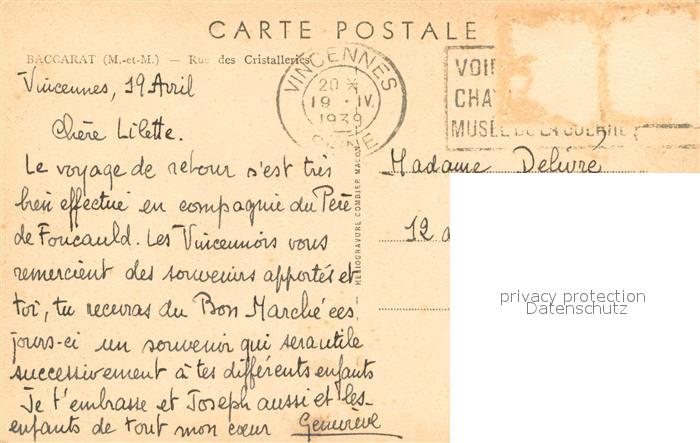 CARTE POSTALE
BACCARAT (M.-et-M.) — Rue des Cristalleries
Vincennes, 19 Avril
VINCENNES
20 *
19 · IV.
1939
SEINE
VOIR
CHA
MUSÉE DE LA GUERRE
Chère Lilette.
Le voyage de retour s'est très
bien effectué en compagnie du Père
de Foucauld. Les Vincennois vous
remercient des souvenirs apportés et
toi, tu recevras du Bon Marché ces
jours-ci un souvenir qui sera utile
successivement à tes différents enfants
Je t'embrasse et Joseph aussi et les
enfants de tout mon cœur Geneviève
HELIOGRAVURE COMBIER MACON
Madame Delivré
12
privacy protection
Datenschutz